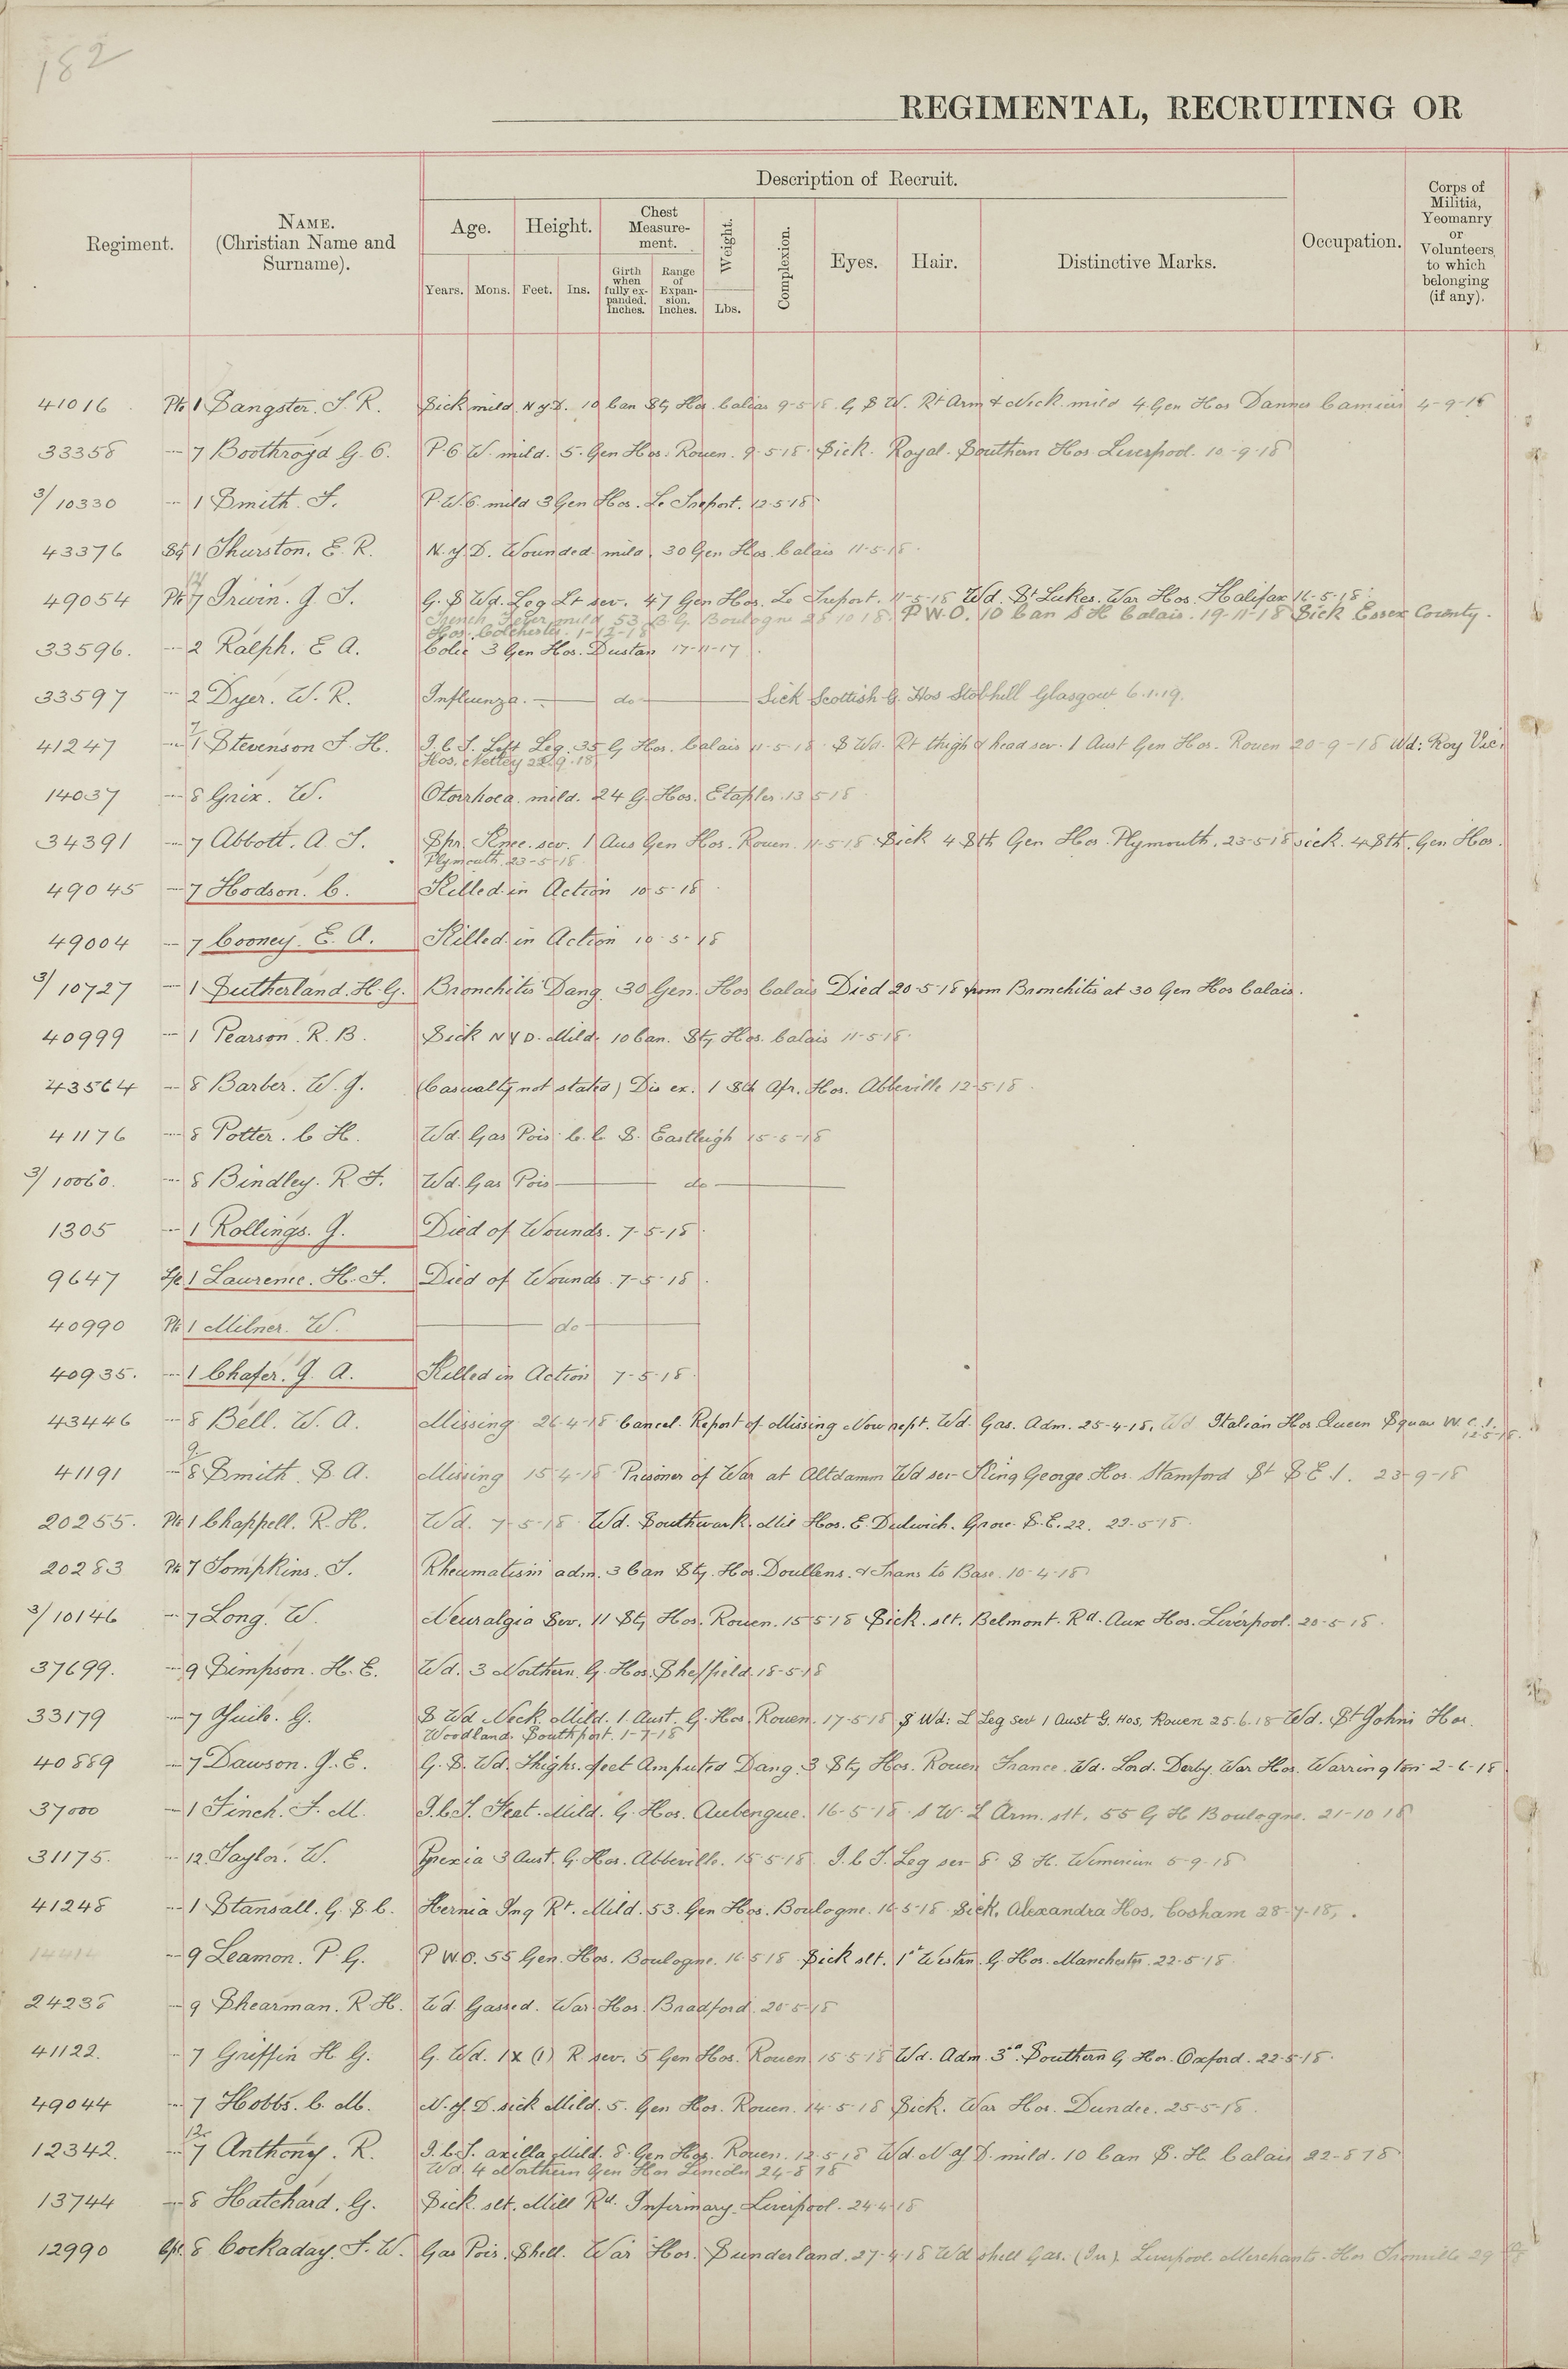 182
REGIMENTAL, RECRUITING OR
Description of Recruit.
Regiment.
NAME.
(Christian Name and
Surname).
Age.
Height.
Chest
Measure-
ment.
Weight.
Complexion.
Eyes.
Hair.
Distinctive Marks.
Occupation.
Corps of
Militia,
Yeomanry
or
Volunteers
to which
belonging
(if any).
Years.
Mons.
Feet.
Ins.
Girth
when
fully ex-
panded.
Inches.
Range
of
Expan-
sion.
Inches.
Lbs.
41016 Pte 1 Sangster. J. R. Sick mild N Y D. 10 Can Sty Hos. Calias 9-5-18. G S W. Rt Arm & Neck mild 4 Gen Hos Dannes Camiers 4-9-18
33358 -- 7 Boothroyd G. G. P. G W. mild. 5. Gen Hos. Rouen. 9.5.18. Sick. Royal. Southern Hos. Liverpool. 10-9-18
3/10330 -- 1 Smith. F. P. W. G. mild 3 Gen Hos. Le Treport. 12.5.18
43376 Sgt 1 Thurston. E. R. N. Y. D. Wounded mild. 30 Gen Hos. Calais 11-5-18.
49054 Pte 7 Irwin. J. T. G. S Wd. Leg Lt sev. 47 Gen Hos. Le Treport. 11-5-18 Wd. St Lukes. War Hos. Halifax 16-5-18.
Trench Fever mild 53 G. Boulogne 28 10 18. P W. O. 10 Can S H Calais. 19-11-18 Sick Essex County.
Hos. Colchester. 1-12-18
33596. -- 2 Ralph. E A. Colic 3 Gen Hos. Dustan 17-11-17.
33597 -- 2 Dyer. W. R. Influenza. -- do -- Sick Scottish G. Hos Stobhill Glasgow 6.1.19.
41247 -- 1 Stevenson J. H. I. C. T. Left Leg. 35 G Hos. Calais 11-5-18. S Wd. Rt thigh & head sev. 1 Aust Gen Hos. Rouen 20-9-18 Wd: Roy Vic.
Hos. Netley 22.9.18
14037 -- 8 Grix. W. Otorrhoea. mild. 24 G. Hos. Etaples. 13 5 18
34391 -- 7 Abbott. A. J. Spr. Knee. sev. 1 Aus Gen Hos. Rouen. 11-5-18. Sick 4 Sth Gen Hos. Plymouth. 23-5-18 sick. 4 Sth. Gen Hos.
Plymouth. 23-5-18.
49045 -- 7 Hodson. C. Killed in Action 10-5-18
49004 -- 7 Cooney. E. A. Killed in Action 10-5-18
3/10727 -- 1 Sutherland. H. G. Bronchitis Dang. 30 Gen. Hos Calais Died 20-5-18 from Bronchitis at 30 Gen Hos Calais.
40999 -- 1 Pearson. R. B. Sick N Y D. Mild. 10 Can. Sty Hos. Calais 11-5-18.
43564 -- 8 Barber. W. G. (Casualty not stated) Dis ex. 1 Sth Afr. Hos. Abbeville 12-5-18.
41176 -- 8 Potter. C H. Wd. Gas Pois. C. C. S. Eastleigh 15-5-18
3/10060. -- 8 Bindley. R. F. Wd. Gas Pois -- do --
1305 -- 1 Rollings. G. Died of Wounds. 7-5-18
9647 L/c 1 Laurence. H. J. Died of Wounds. 7-5-18.
40990 Pte 1 Milner. W. -- do --
40935. -- 1 Chafer. G. A. Killed in Action 7-5-18
43446 -- 8 Bell. W. A. Missing 26-4-18 Cancel. Report of Missing Now rept. Wd. Gas. Adm. 25-4-18. Wd Italian Hos Queen Square W. C. 1.
12-5-18.
41191 -- 8 Smith. S. A. Missing 15-4-18 Prisoner of War at Altdamm Wd sev King George Hos. Stamford St S E 1. 23-9-18
20255. Pte 1 Chappell. R. H. Wd. 7-5-18. Wd. Southwark. Mil Hos. E. Dulwich. Grove. S. E. 22. 22-5-18.
20283 Pte 7 Tompkins. J. Rheumatism adm. 3 Can Sty. Hos. Doullens. & Trans to Base. 10-4-18
3/10146 -- 7 Long. W. Neuralgia Sev. 11 Sty Hos. Rouen. 15 5 18 Sick. slt. Belmont. Rd. Aux Hos. Liverpool. 20-5-18.
37699. -- 9 Simpson. H. E. Wd. 3 Northern. G. Hos. Sheffield. 18-5-18
33179 -- 7 G. S Wd Neck. Mild. 1. Aust. G. Hos. Rouen. 17-5-18 S Wd: L Leg sev 1 Aust G. Hos. Rouen 25.6.18 Wd. St Johns Hos.
Woodland. Southport. 1-7-18
40889 -- 7 Dawson. J. E. G. S. Wd. Thighs. feet Amputed Dang. 3 Sty Hos. Rouen France. Wd. Lord. Derby. War Hos. Warrington. 2-6-18
37000 -- 1 Finch. F. M. I. C. T. Feet. Mild. G. Hos. Aubengue. 16-5-18. S W. L Arm. slt. 55 G H Boulogne. 21-10 18
31175. -- 12. Taylor. W. Pyrexia 3 Aust. G. Hos. Abbeville. 15 5 18. I. C T. Leg sev 8. S H. Wimereux 5-9-18
41248 -- 1 Stansall. G. S. C. Hernia Ing Rt. Mild. 53. Gen Hos. Boulogne. 16-5-18 Sick, Alexandra Hos. Cosham 28-7-18.
14414 -- 9 Leamon. P. G. P W. O. 55 Gen. Hos. Boulogne. 16 5 18 Sick slt. 1st Western. G. Hos. Manchester. 22-5-18.
24238 -- 9 Shearman. R. H. Wd Gassed. War Hos. Bradford. 20 5 18
41122. -- 7 Griffin H. G. G. Wd. 1X (1) R sev. 5 Gen Hos. Rouen 15 5 18 Wd. Adm. 3rd. Southern G Hos. Oxford. 22-5-18.
49044 -- 7 Hobbs. C. M. N. Y. D. sick Mild. 5. Gen Hos. Rouen. 14-5-18 Sick. War Hos. Dundee. 25-5-18.
12342. -- 7 Anthony. R. I. C. T. axilla Mild. 8. Gen Hos. Rouen. 12.5.18 Wd. N Y D. mild. 10 Can S. H. Calais 22-8 18
Wd. 4 Northern Gen Hos Lincoln 24-8 18
13744 -- 8 Hatchard. G. Sick slt. Mill Rd. Infirmary. Liverpool. 24-4-18
12990 Cpl. 8 Cockaday. F. W. Gas Pois. Shell. War Hos. Sunderland. 27-4-18 Wd shell Gas. Liverpool. Merchants. Hos 29